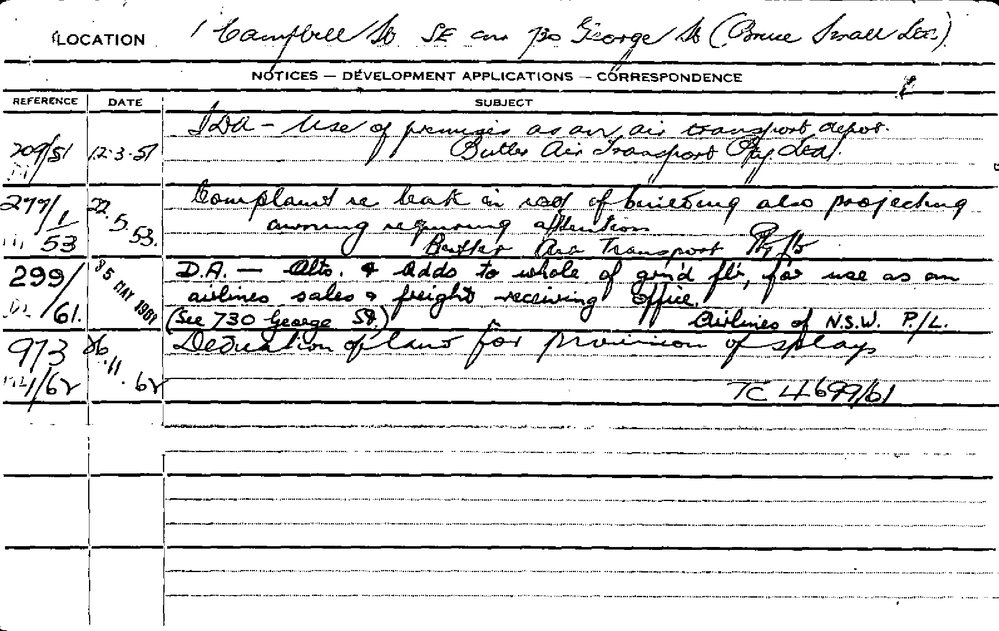 LOCATION 1 Campbell St SE cnr 730 George St (Bruce Small Ltd.)
NOTICES — DEVELOPMENT APPLICATIONS — CORRESPONDENCE
REFERENCE DATE SUBJECT
IDA - Use of premises as an air transport depot.
209/51 12.3.51 Butler Air Transport Pty. Ltd.
277/1 22. Complaint re leak in roof of building also projecting
53 5. 53. awning requiring attention
Butler Air Transport P/L
299/ 5 MAY 1961 D.A. — Alts. & Adds to whole of grn'd flr, for use as an
airlines sales & freight receiving office.
/61. (See 730 George St.) Airlines of N.S.W. P./L.
973 26. Dedication of land for provision of splays
1/62 11. 62
TC 4699/61